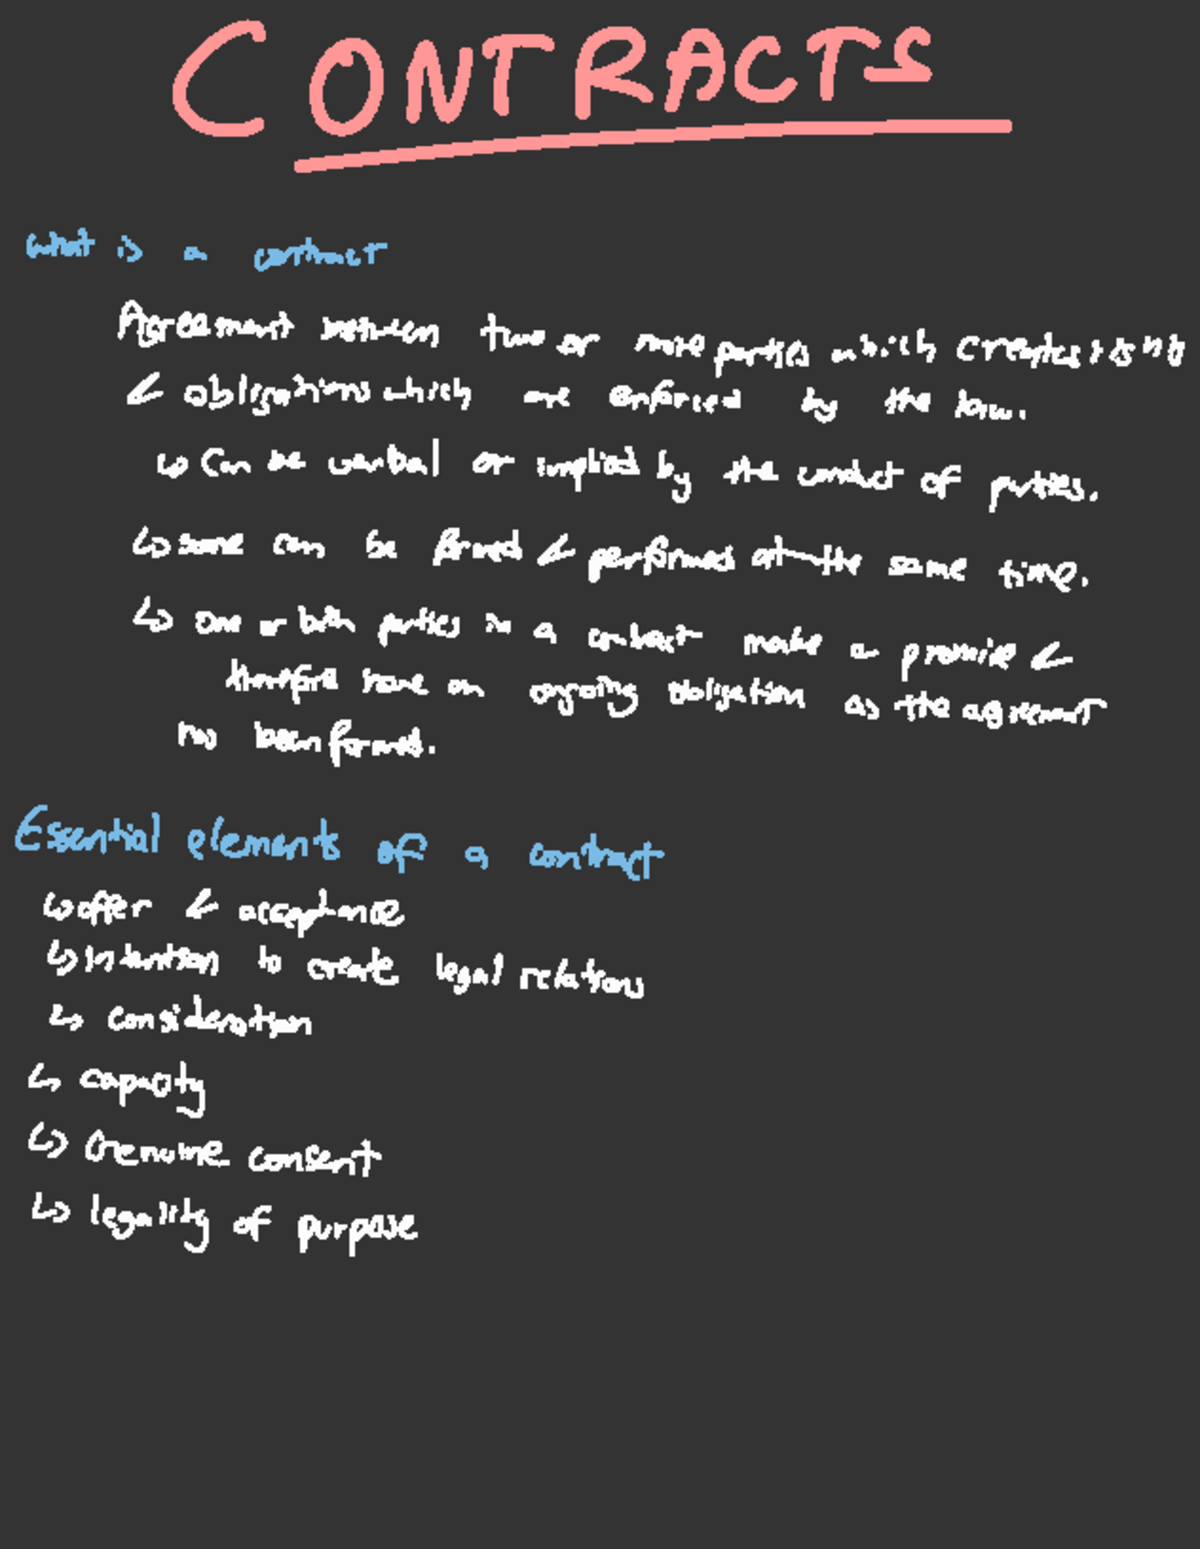 CONTRACTS
what is a contract
Agreement between two or more parties which creates rights
& obligations which are enforced by the law.
↳ Can be verbal or implied by the conduct of parties.
↳ some can be formed & performed at the same time.
↳ one or both parties in a contract make a promise &
therefore have an ongoing obligation as the agreement
has been formed.
Essential elements of a contract
↳ offer & acceptance
↳ intention to create legal relations
↳ consideration
↳ capacity
↳ Genuine consent
↳ legality of purpose